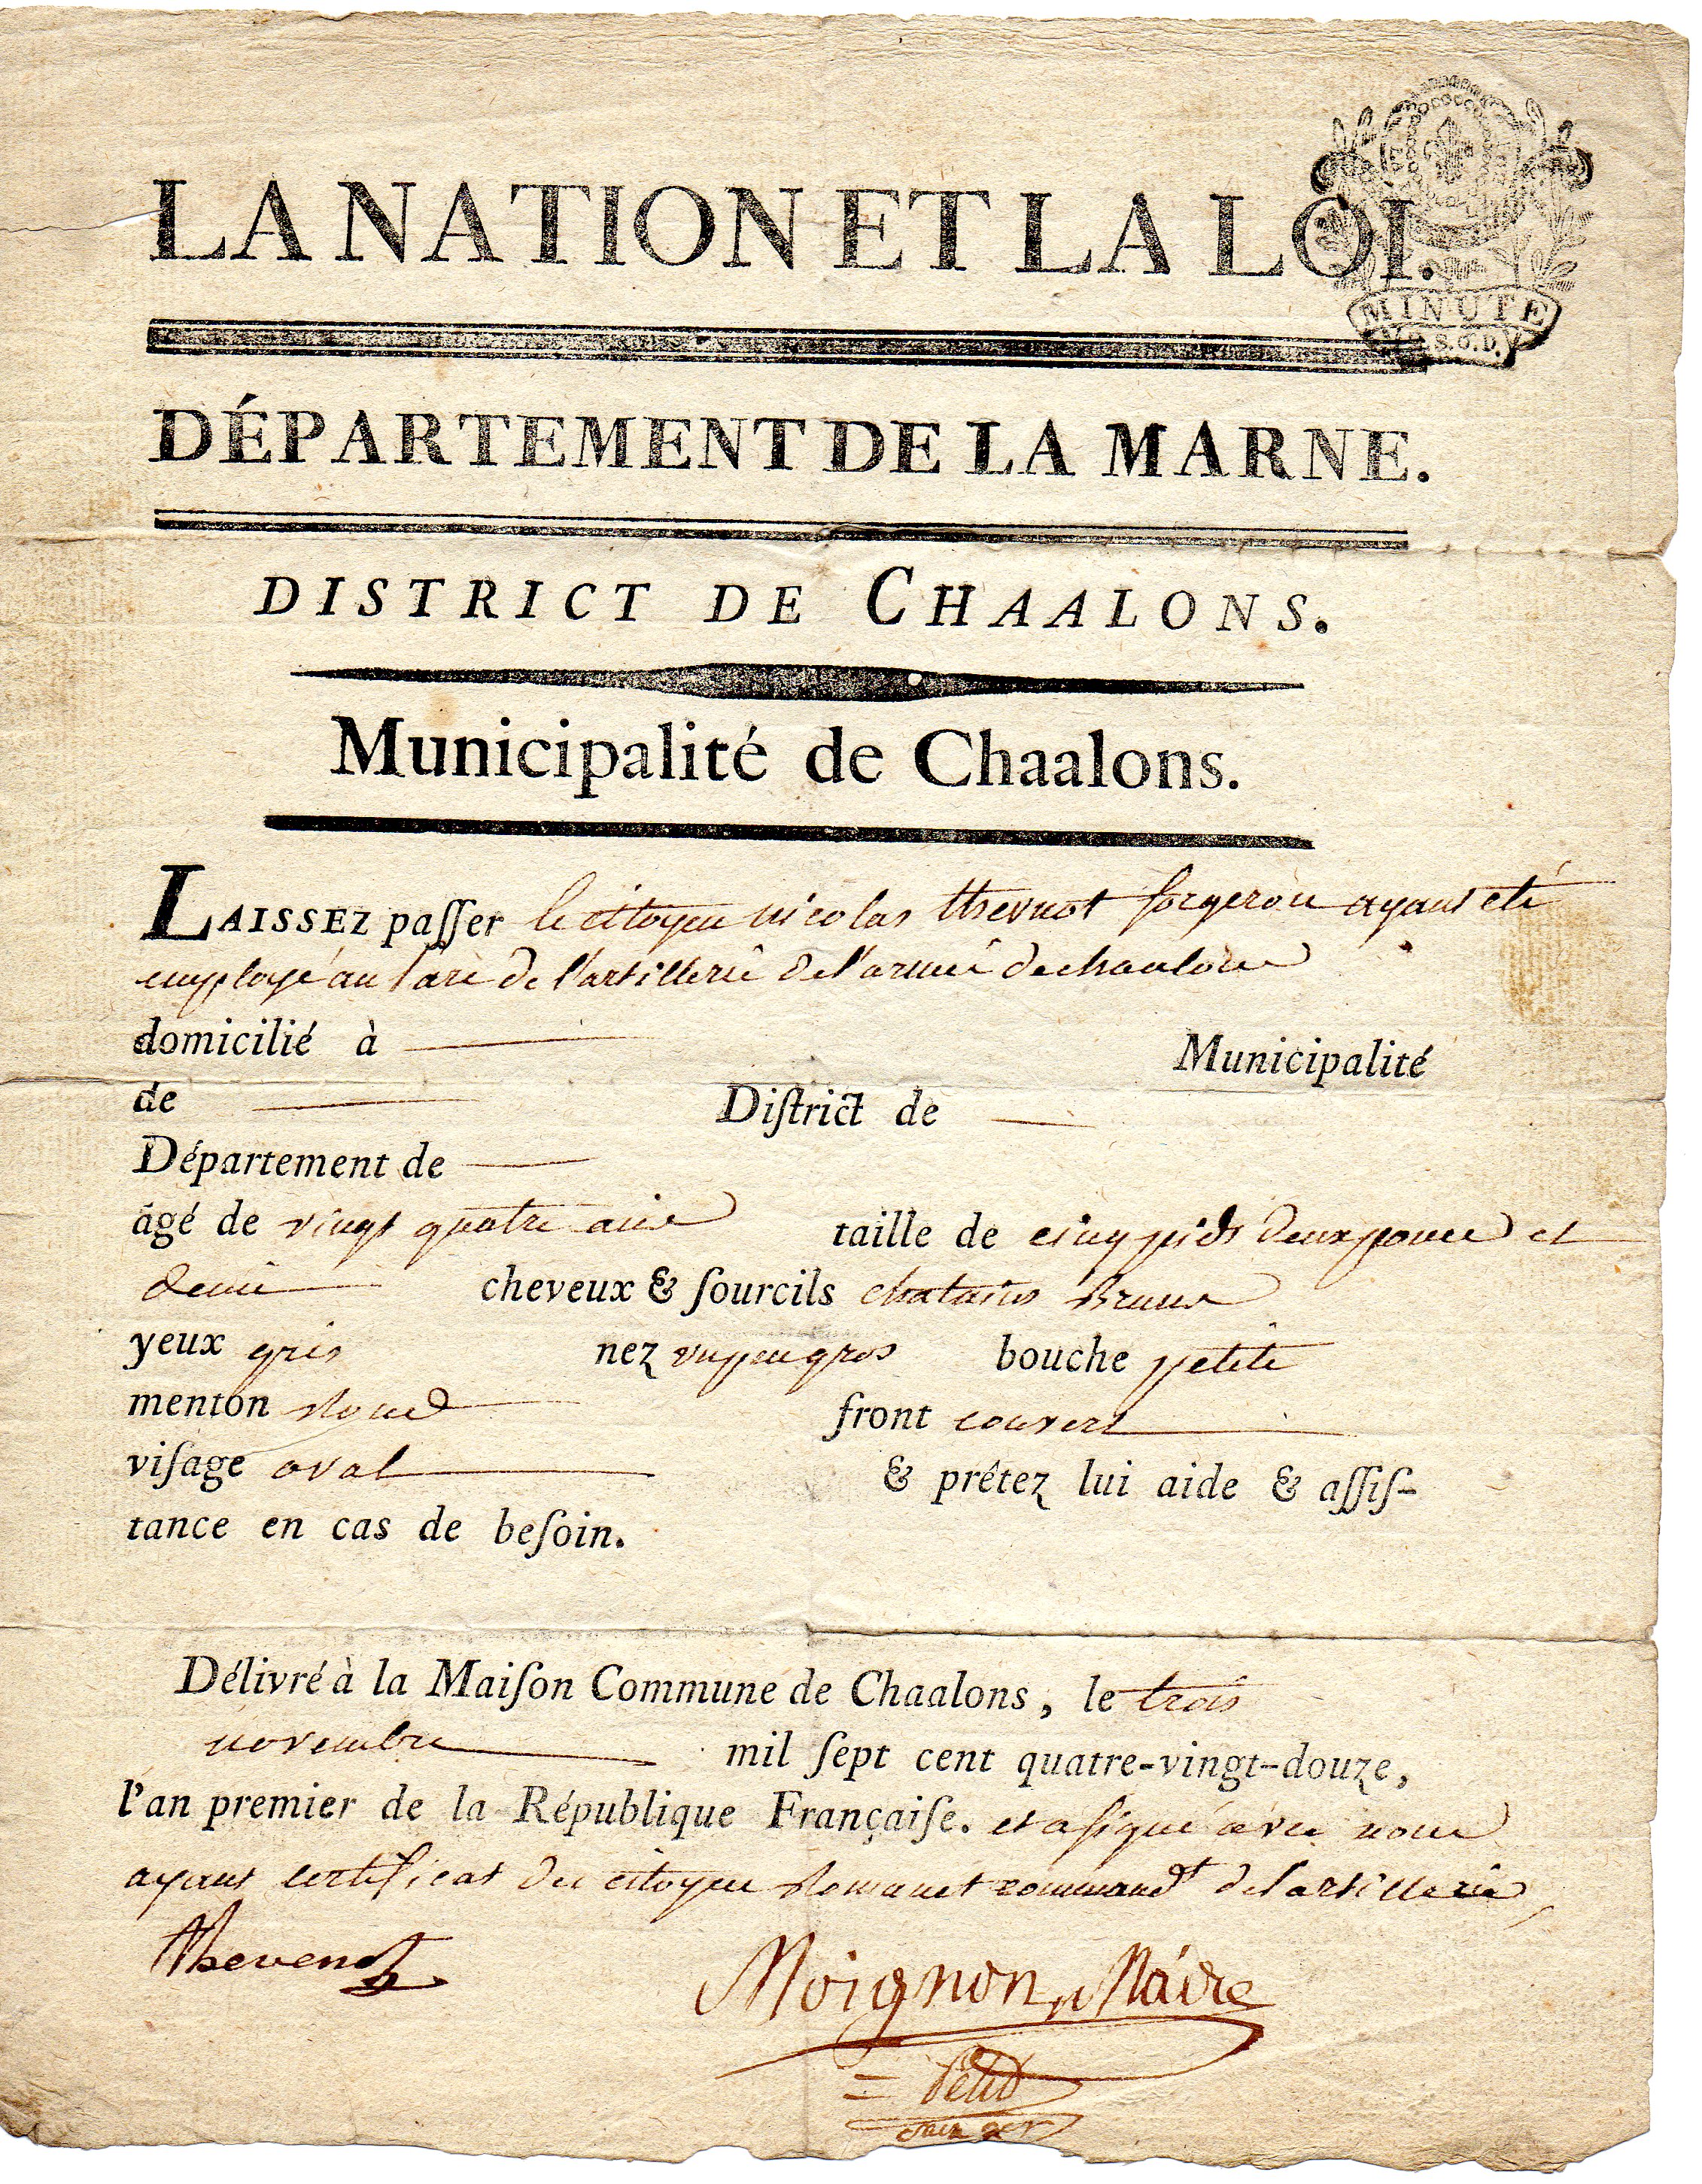 LA NATION ET LA LOI.
MINUTE
S.O.D.
DÉPARTEMENT DE LA MARNE.
DISTRICT DE CHAALONS.
Municipalité de Chaalons.
LAISSEZ paſſer le citoyen nicolas thevnot forgeron ayant eté
employé au parc de l'artillerie de l'armée de chaalons
domicilié à Municipalité
de Diſtrict de
Département de
âgé de vingt quatre ans taille de cinq pieds deux pouces et
demi cheveux & ſourcils chatains Bruns
yeux gris nez un peu gros bouche petite
menton Rond front couvert
viſage oval & prêtez lui aide & aſſiſ-
tance en cas de beſoin.
Délivré à la Maiſon Commune de Chaalons, le trois
novembre mil ſept cent quatre-vingt-douze,
l'an premier de la République Françaiſe. et a signé avec nous
ayant certificat du citoyen Romanet command.t de l'artillerie
Thevenot
Moignon, Maire
Petit